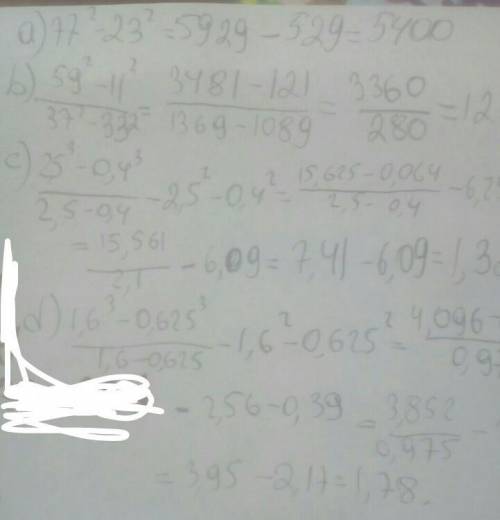 a) 77² - 23² = 5929 - 529 = 5400
b) (59² - 11²)/(37² - 33²) = (3481 - 121)/(1369 - 1089) = 3360/280 = 12
c) (2,5³ - 0,4³)/(2,5 - 0,4) - 2,5² - 0,4² = (15,625 - 0,064)/(2,5 - 0,4) - 6,2
= 15,561/2,1 - 6,09 = 7,41 - 6,09 = 1,3
d) (1,6³ - 0,625³)/(1,6 - 0,625) - 1,6² - 0,625² = (4,096 -)/(0,9
- 2,56 - 0,39 = 3,852/0,975 -
= 3,95 - 2,17 = 1,78.